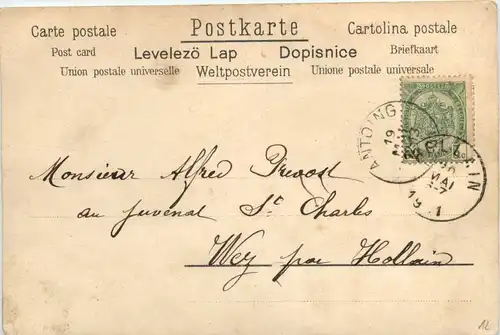 Carte postale Postkarte Cartolina postale
Post card Levelezö Lap Dopisnice Briefkaart
Union postale universelle Weltpostverein Unione postale universale
ANTOING
19
Monsieur Alfred Prevost
MAI
au juvenat St Charles
19 1
Wez par Hollain
12